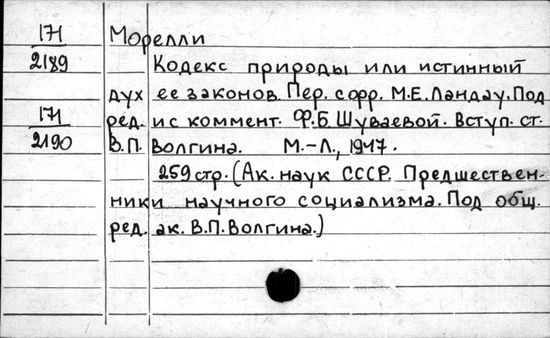 171 Морелли
2189 Кодекс природы или истинный
дух ее законов. Пер. с фр. М.Е. Ландау. Под
171 ред. и с коммент. Ф.Б. Шуваевой. Вступ. ст.
2190 В.П. Волгина. М.-Л., 1947.
259 стр. (Ак. наук СССР. Предшествен-
ники научного социализма. Под общ.
ред. ак. В.П. Волгина.)